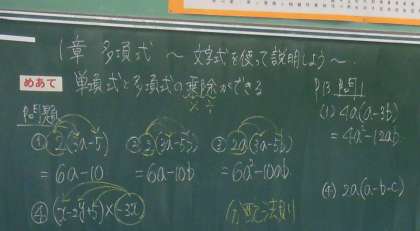 1章 多項式 ～文字式を使って説明しよう～
めあて 単項式と多項式の乗除ができる
× ÷
問題
① 2(3a-5)
= 6a-10
② 2(3a-5b)
= 6a-10b
③ 2a(3a-5b)
= 6a²-10ab
④ (x-2y+5)×(-3x)
P13 問1
(1) 4a(a-3b)
= 4a²-12ab
(4) 2a(a-b-c)